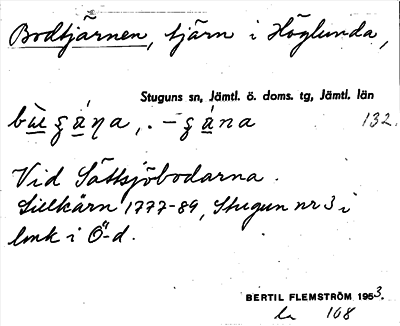 Bodtjärnen, tjärn i Höglunda,
Stuguns sn, Jämtl. ö. doms. tg, Jämtl. län
132.
Vid Sättsjöbodarna.
1777-89, Stugun nr 3 i
lmk i Ö-d.
BERTIL FLEMSTRÖM 1953.
108